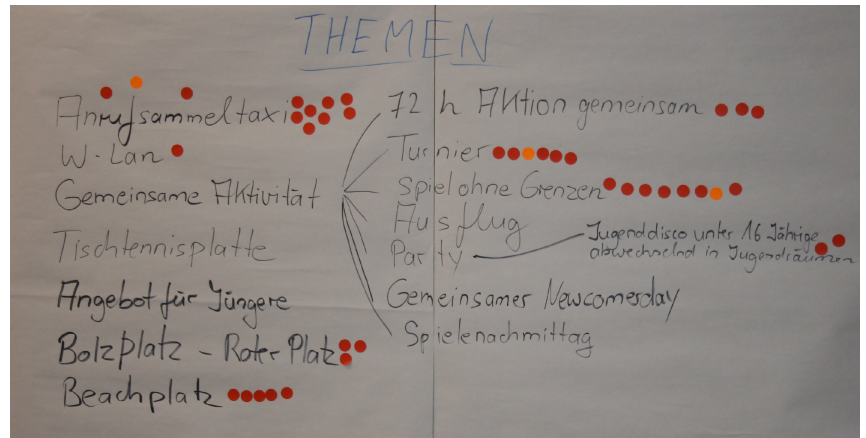 THEMEN
Anrufsammeltaxi
W-Lan
Gemeinsame Aktivität
Tischtennisplatte
Angebot für Jüngere
Bolzplatz - Roter Platz
Beachplatz
72 h Aktion gemeinsam
Turnier
Spiel ohne Grenzen
Ausflug
Party
Jugenddisco unter 16 Jährige
abwechselnd in Jugendräumen
Gemeinsamer Newcomersday
Spielenachmittag